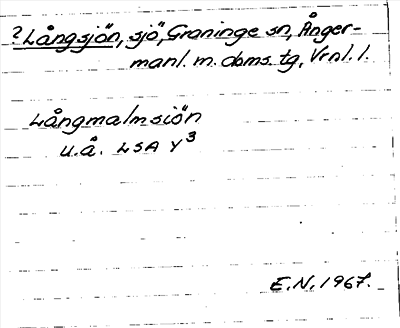 ? Långsjön, sjö, Graninge sn, Ånger-
manl. m. doms. tg, Vrnl. l.
Långmalmsiön
u.å. LSA Y3
E.N. 1967.